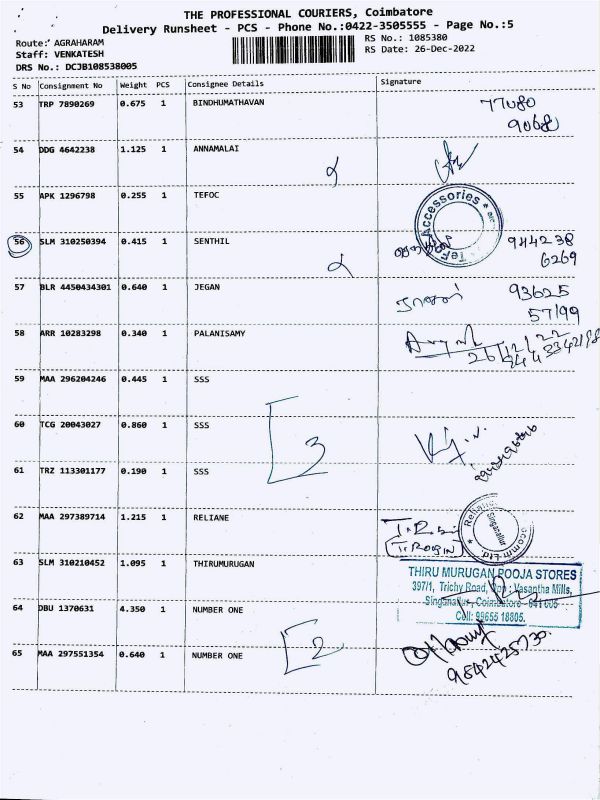 THE PROFESSIONAL COURIERS, Coimbatore
Delivery Runsheet - PCS - Phone No.:0422-3505555 - Page No.:5
Route: AGRAHARAM
RS No.: 1085380
Staff: VENKATESH
RS Date: 26-Dec-2022
DRS No.: DCJB108538005
S No Consignment No Weight PCS Consignee Details Signature
53 TRP 7890269 0.675 1 BINDHUMATHAVAN 77080
9068
54 DDG 4642238 1.125 1 ANNAMALAI
55 APK 1296798 0.255 1 TEFOC
Accessories
56 SLM 310250394 0.415 1 SENTHIL 944238
6269
57 BLR 4450434301 0.640 1 JEGAN 93625
57199
58 ARR 10283298 0.340 1 PALANISAMY
26/12/22
59 MAA 296204246 0.445 1 SSS
60 TCG 20043027 0.860 1 SSS 3
61 TRZ 113301177 0.190 1 SSS
62 MAA 297389714 1.215 1 RELIANE
Singanallur
63 SLM 310210452 1.095 1 THIRUMURUGAN
THIRU MURUGAN POOJA STORES
397/1, Trichy Road, Opp : Vasantha Mills,
Singanallur, Coimbatore - 641 005
Cell: 99655 18805.
64 DBU 1370631 4.350 1 NUMBER ONE
65 MAA 297551354 0.640 1 NUMBER ONE 2